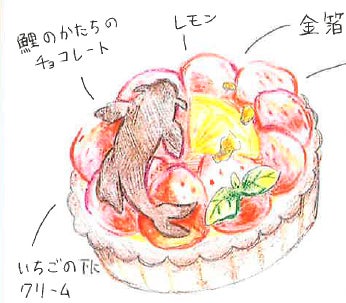 鯉のかたちの
チョコレート
レモン
金箔
いちごの下に
クリーム